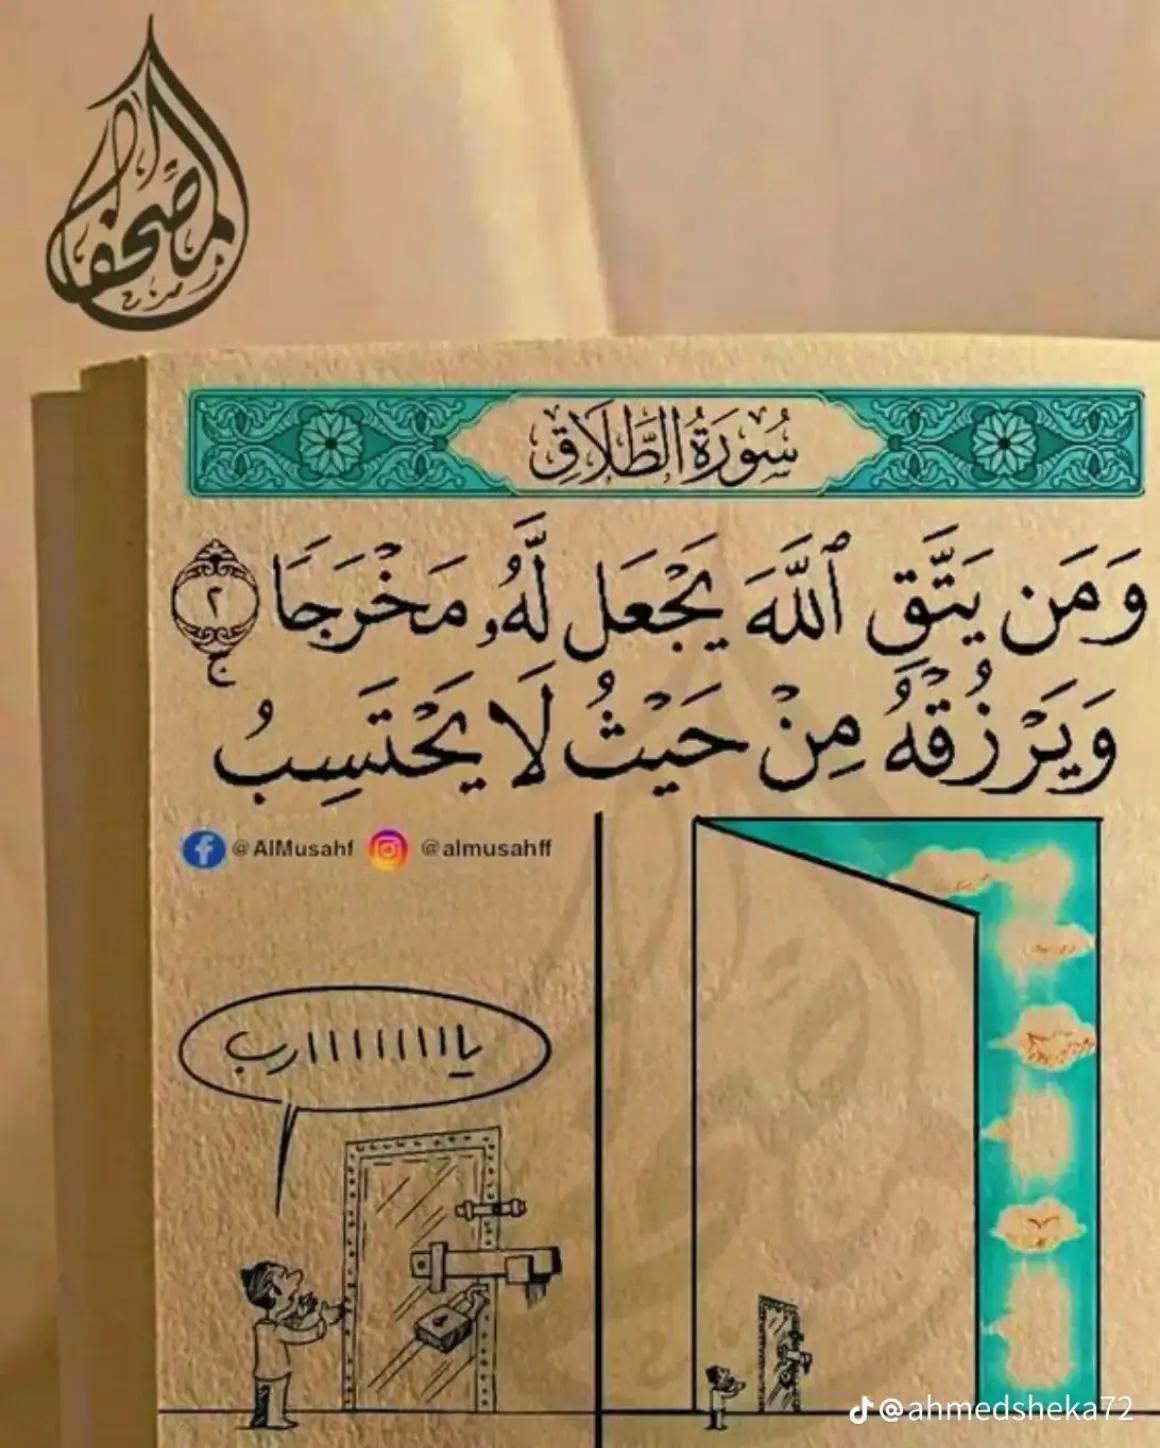 المصحف
سُورَةُ الطَّلَاقِ
وَمَن يَتَّقِ ٱللَّهَ يَجْعَل لَّهُۥ مَخْرَجًا ٢
وَيَرْزُقْهُ مِنْ حَيْثُ لَا يَحْتَسِبُ ۚ
@AlMusahf @almusahff
يااااااااارب
@ahmedsheka72